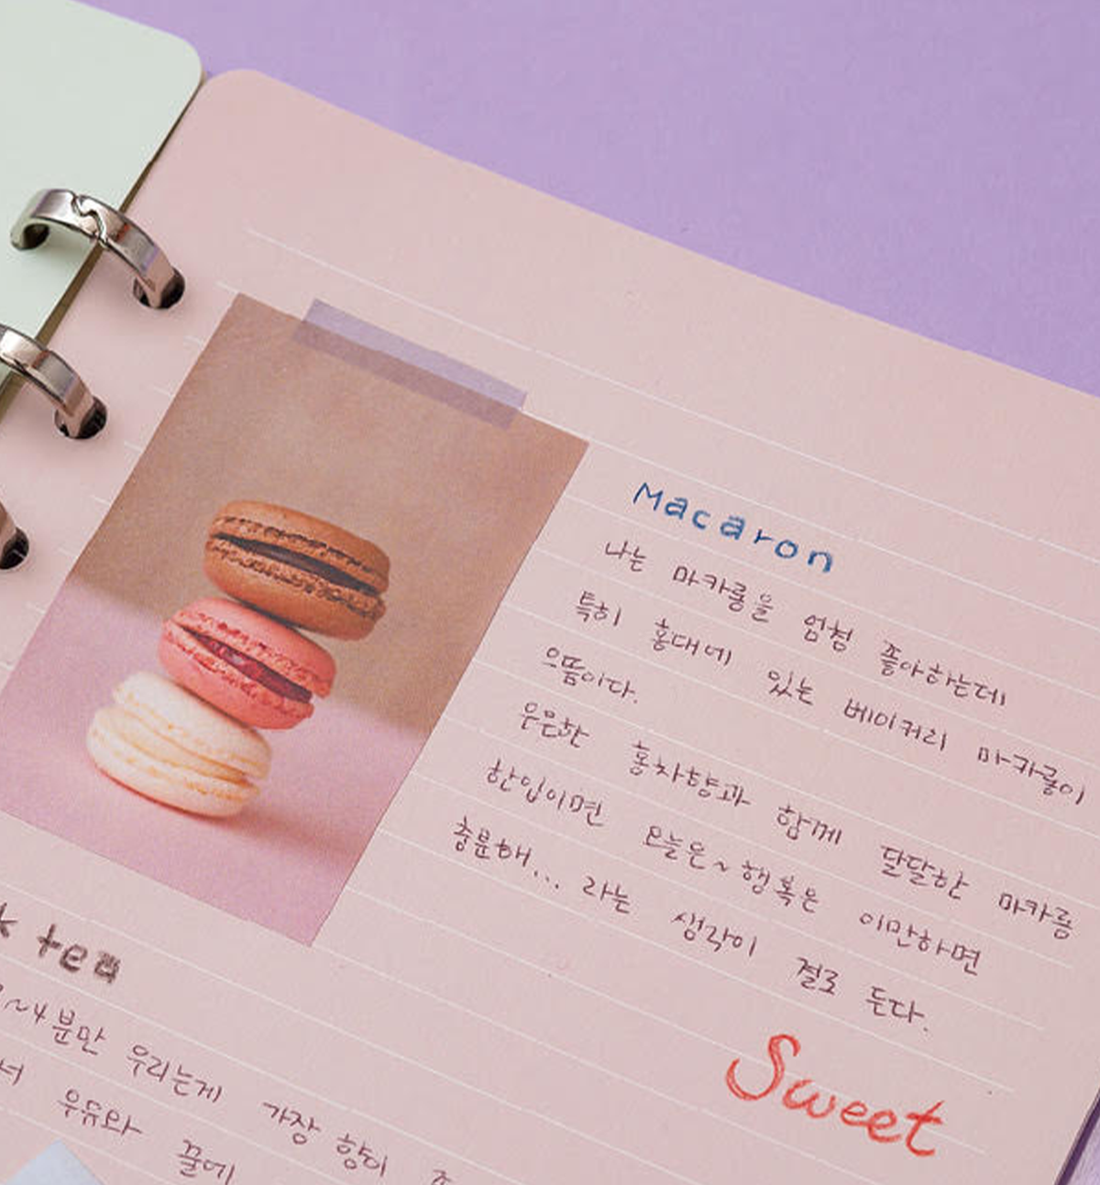 Macaron
나는 마카롱을 엄청 좋아하는데
특히 홍대에 있는 베이커리 마카롱이
으뜸이다.
은은한 홍차향과 함께 달달한 마카롱
한입이면 오늘은~행복은 이만하면
충분해... 라는 생각이 절로 든다.
Sweet
k tea
~4분만 우리는게 가장 향이
우유와 꿀에